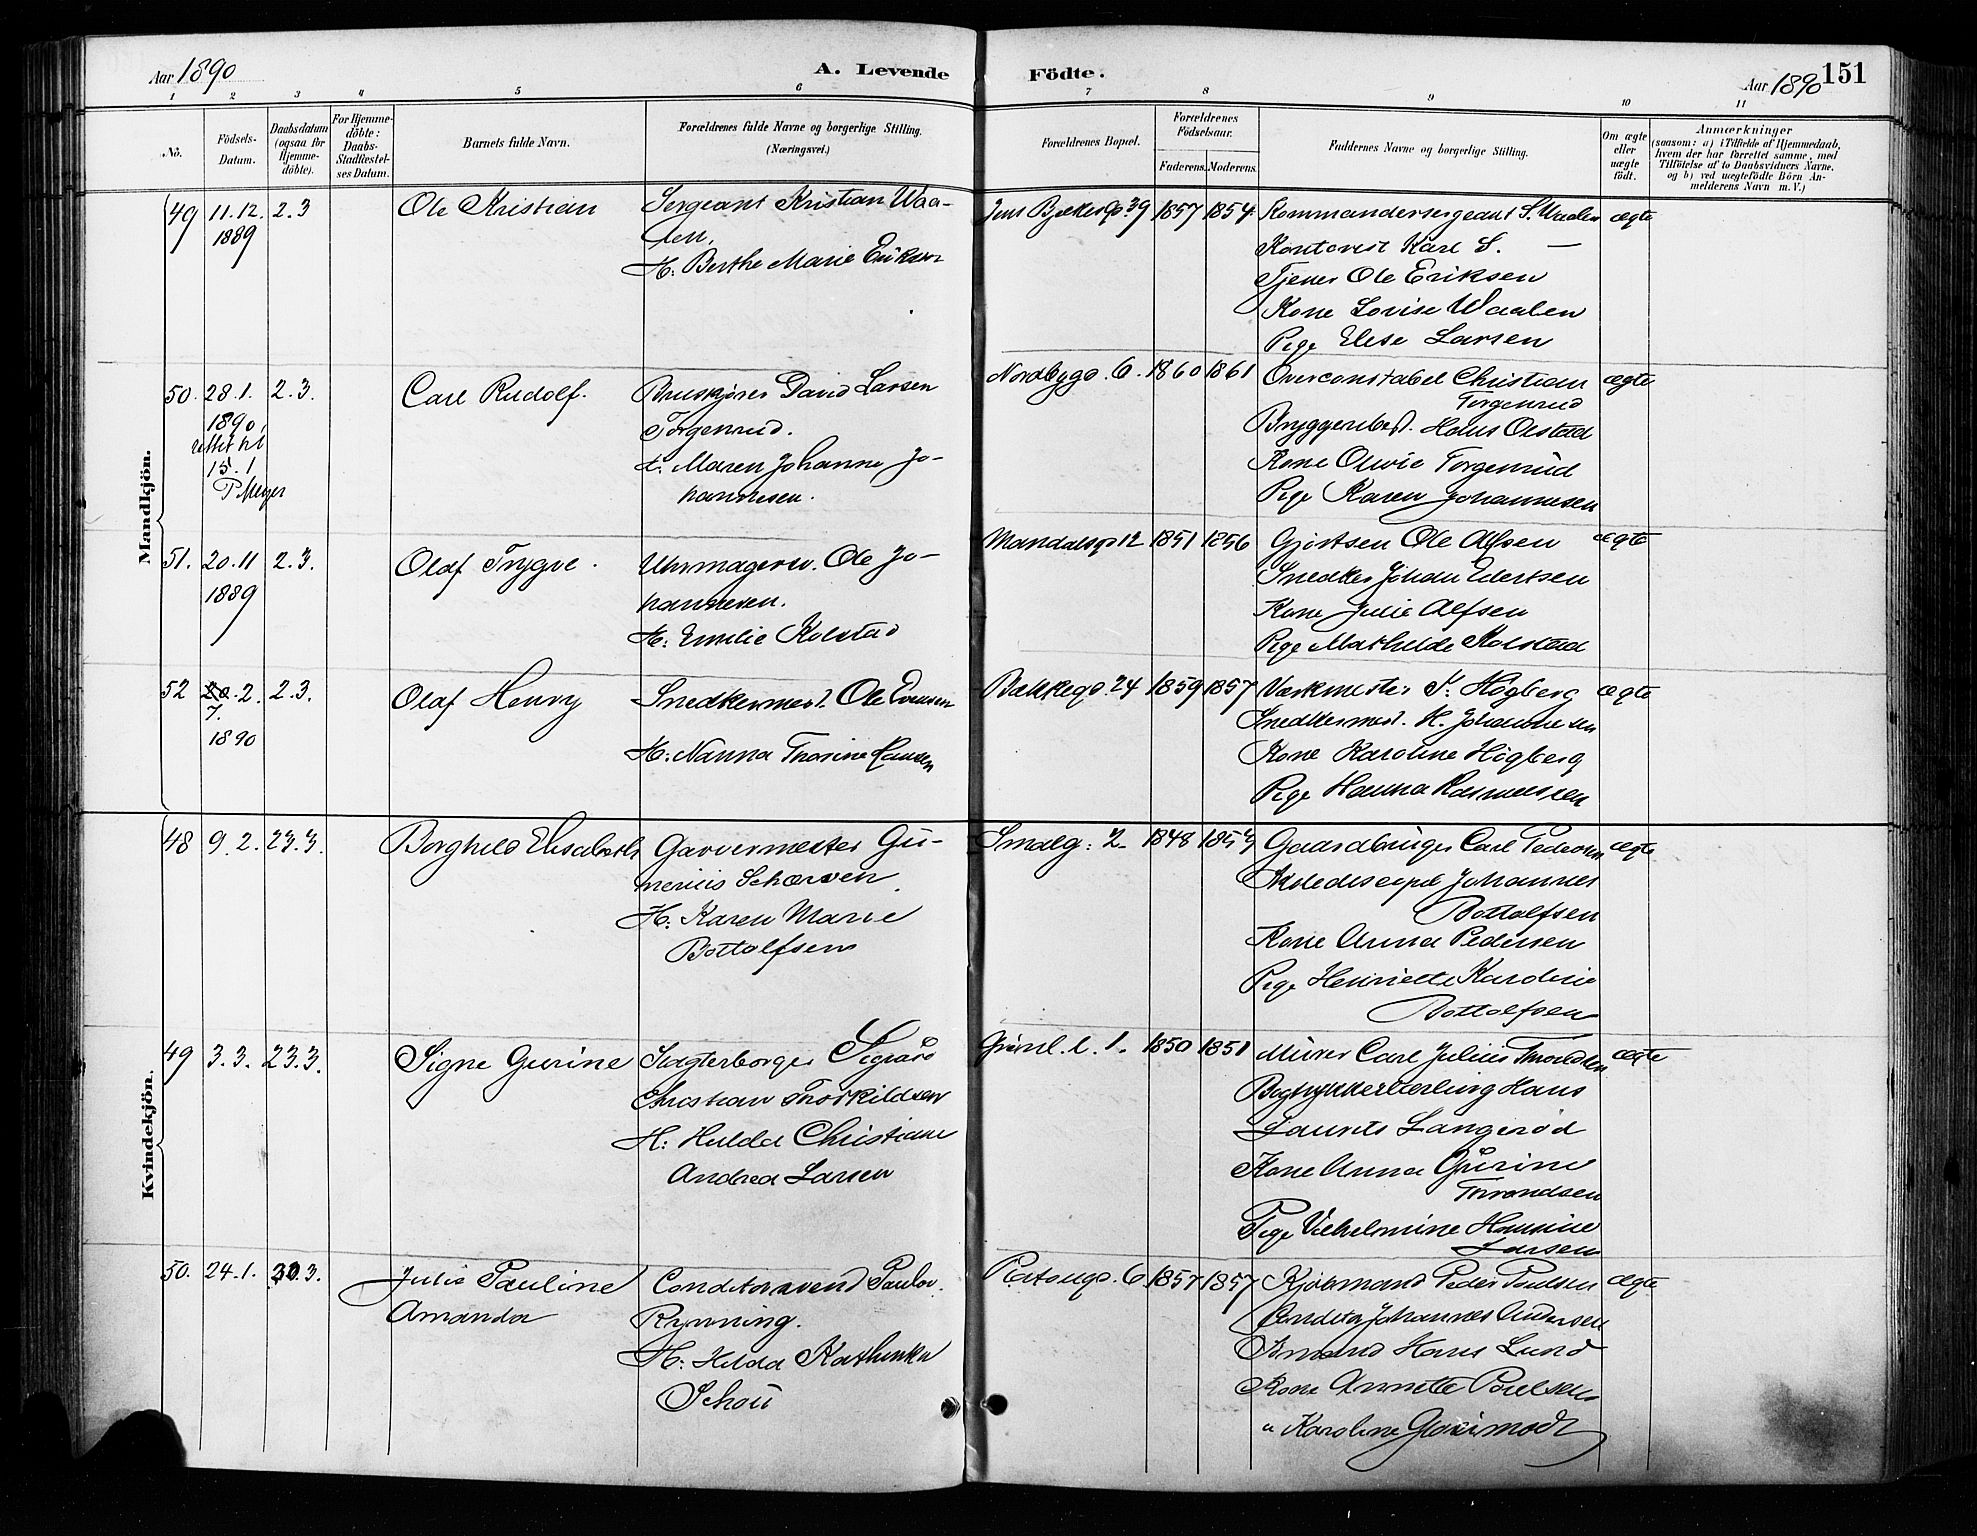 Aar 1890
A. Levende
Födte.
Aar 1890 151
1 2 3 4 5 6 7 8 9 10 11
Nö.
Födsels-Datum.
Daabsdatum (ogsaa för Hjemme-döbte).
For Hjemme-döbte: Daabs-Stadfæstel-ses Datum.
Barnets fulde Navn.
Forældrenes fulde Navne og borgerlige Stilling.
(Næringsvei.)
Forældrenes Bopæl.
Forældrenes Födselsaar.
Faderens. Moderens.
Faddernes Navne og borgerlige Stilling.
Om ægte eller uægte födt.
Anmærkninger
(saasom: a) i Tilfælde af Hjemmedaab,
hvem der har forrettet samme, med
Tilföielse af to Daabsvidners Navne,
og b) ved uægtefödte Börn An-
melderens Navn m. V.)
Mandkjön.
49 11.12. 1889 2.3 Ole Kristian
Sergeant Kristian Waa-
len,
H: Berthe Marie Eriksen
Jens Bjelkesg. 39 1857 1854
Kommandersergeant S. Waalen ægte
Kontorist Karl S. —
Tjener Ole Eriksen
Kone Lovise Waalen
Pige Elise Larsen
50. 28.1. 1890, rettet til 15.1 P Meyer 2.3. Carl Rudolf.
Bruskjører David Larsen
Torgenrud.
H. Maren Johanne Jo-
hannesen.
Nordbygd. 6. 1860 1861
Overconstabel Christian ægte
Torgenrud
Bryggeribest. Hans Olstad
Kone Olivie Torgenrud
Pige Karen Johannesen
51. 20.11 1889 2.3. Olaf Trygve.
Uhrmagersv. Ole Jo-
hannesen.
H: Emilie Kolstad
Mandalsg. 12 1851 1856
Ole Alfsen ægte
Snedker Johan Edertsen
Kone Julie Alfsen
Pige Mathilde Kolstad
52 20.2. 7. 1890 2.3. Olaf Henry
Snedkermest. Ole Evensen
H: Nanna Thorine Hansen
Bakkegd. 24 1859 1857
Værkmester S. Högberg ægte
Snedkermest. H. Johannesen
Kone Karoline Högberg
Pige Hanna Rasmussen
Kvindekjön.
48 9.2. 23.3. Borghild Elisabeth
Garvermester Gu-
nerius Schærven
H: Karen Marie
Bottolfsen
Smalg: 2 1848 1854
Gaardbruger Carl Pedersen ægte
Skolediscipel Johannes
Bottolfsen
Kone Anna Pedersen
Pige Henriette Karoline
Bottolfsen
49 3.3. 23.3. Signe Gurine
Slagterborger Sigvard
Christian Thorkildsen
H: Hulda Christiane
Andrea Larsen
Grünl. l. 1. 1850 1851
Murer Carl Julius ægte
Bogtrykkerlærling Hans
Laurits Langerød
Kone Anna Gurine
Pige Vilhelmine Hansine
Larsen
50. 24.1. 30.3. Julie Pauline
Amanda
Conditorsvend Paulus
Rynning.
H: Hilda Kathinka
Schou
Platousgd. 6. 1857 1857
Kjøbmand Peder Poulsen ægte
Conditor Johannes Andersen
Hans Lund
Kone Annette Poulsen
" Karoline